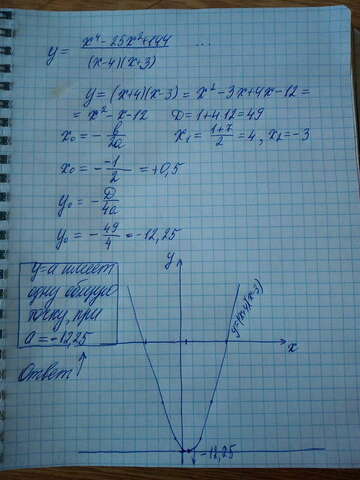 y = x⁴-25x²+144 / (x-4)(x+3) ...
y = (x+4)(x-3) = x² - 3x + 4x - 12 =
= x² - x - 12 D = 1+4·12 = 49
x₀ = - b/2a x₁ = (1+7)/2 = 4, x₂ = -3
x₀ = - -1/2 = +0,5
y₀ = - D/4a
y₀ = - 49/4 = -12,25
y=a имеет
одну общую
точку, при
a = -12,25
Ответ ↑
y
x
y=(x+4)(x-3)
-12,25